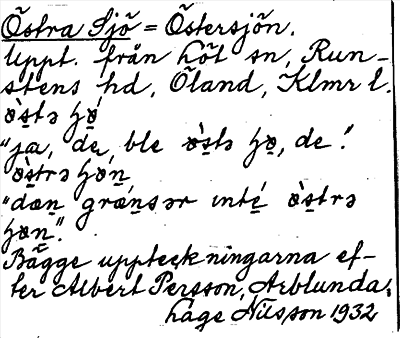 Östra Sjö = Östersjön.
Uppt. från Löt sn, Run-
stens hd, Öland, Klmr l.
ø̀stə ʃǿ̨
"ja, de, ble ø̀stə ʃø̨, de."
ø̀strə ʃøn
"dæn grǽnsər ınté ø̀strə
ʃøn".
Bägge uppteckningarna ef-
ter Albert Persson, Arblunda.
Låge Nilsson 1932